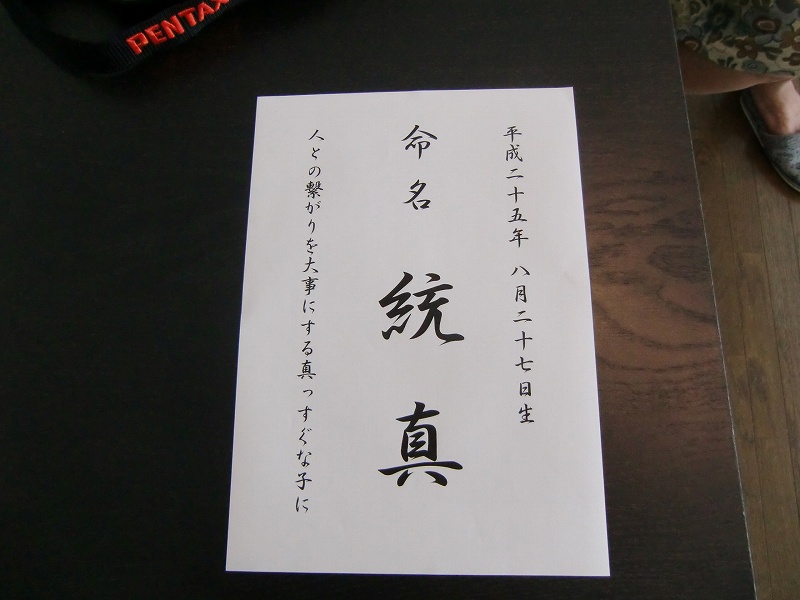 PENTAX
平成二十五年 八月二十七日生
命名 統真
人との繋がりを大事にする真っすぐな子に